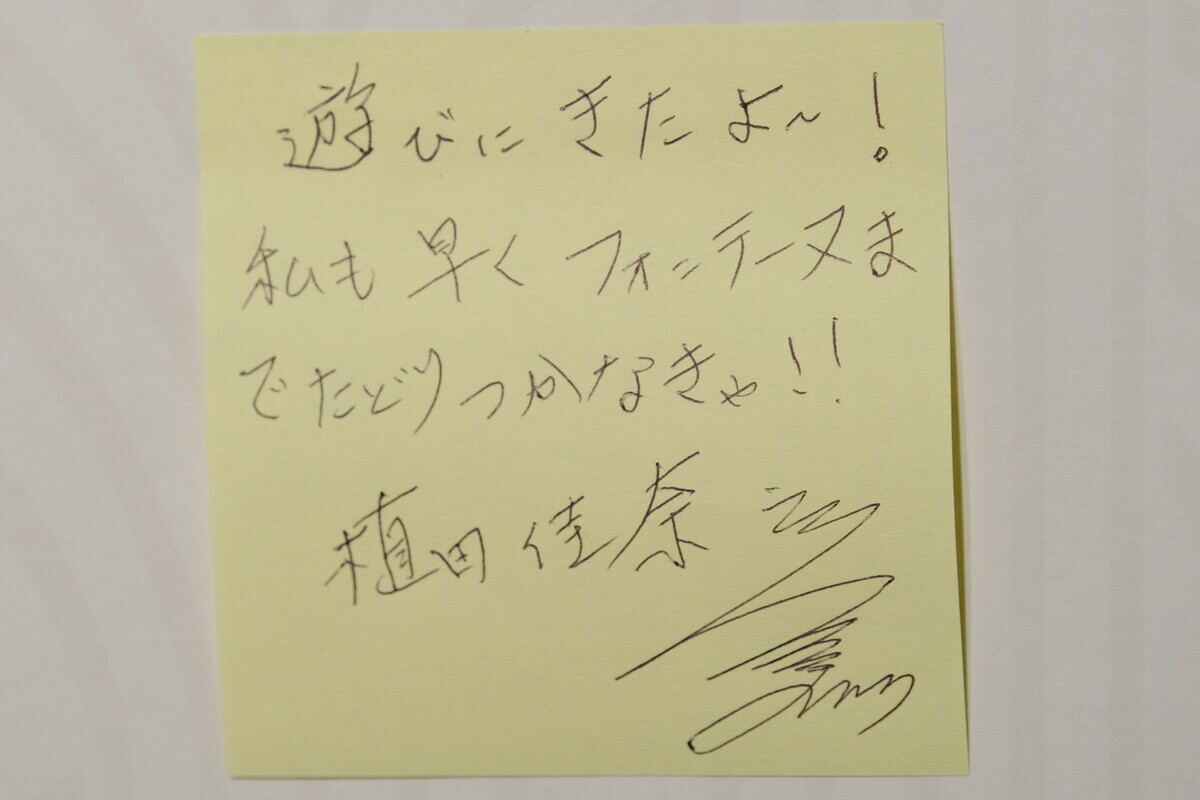 遊びにきたよ～!
私も早くフォンテーヌま
でたどりつかなきゃ!!
植田佳奈